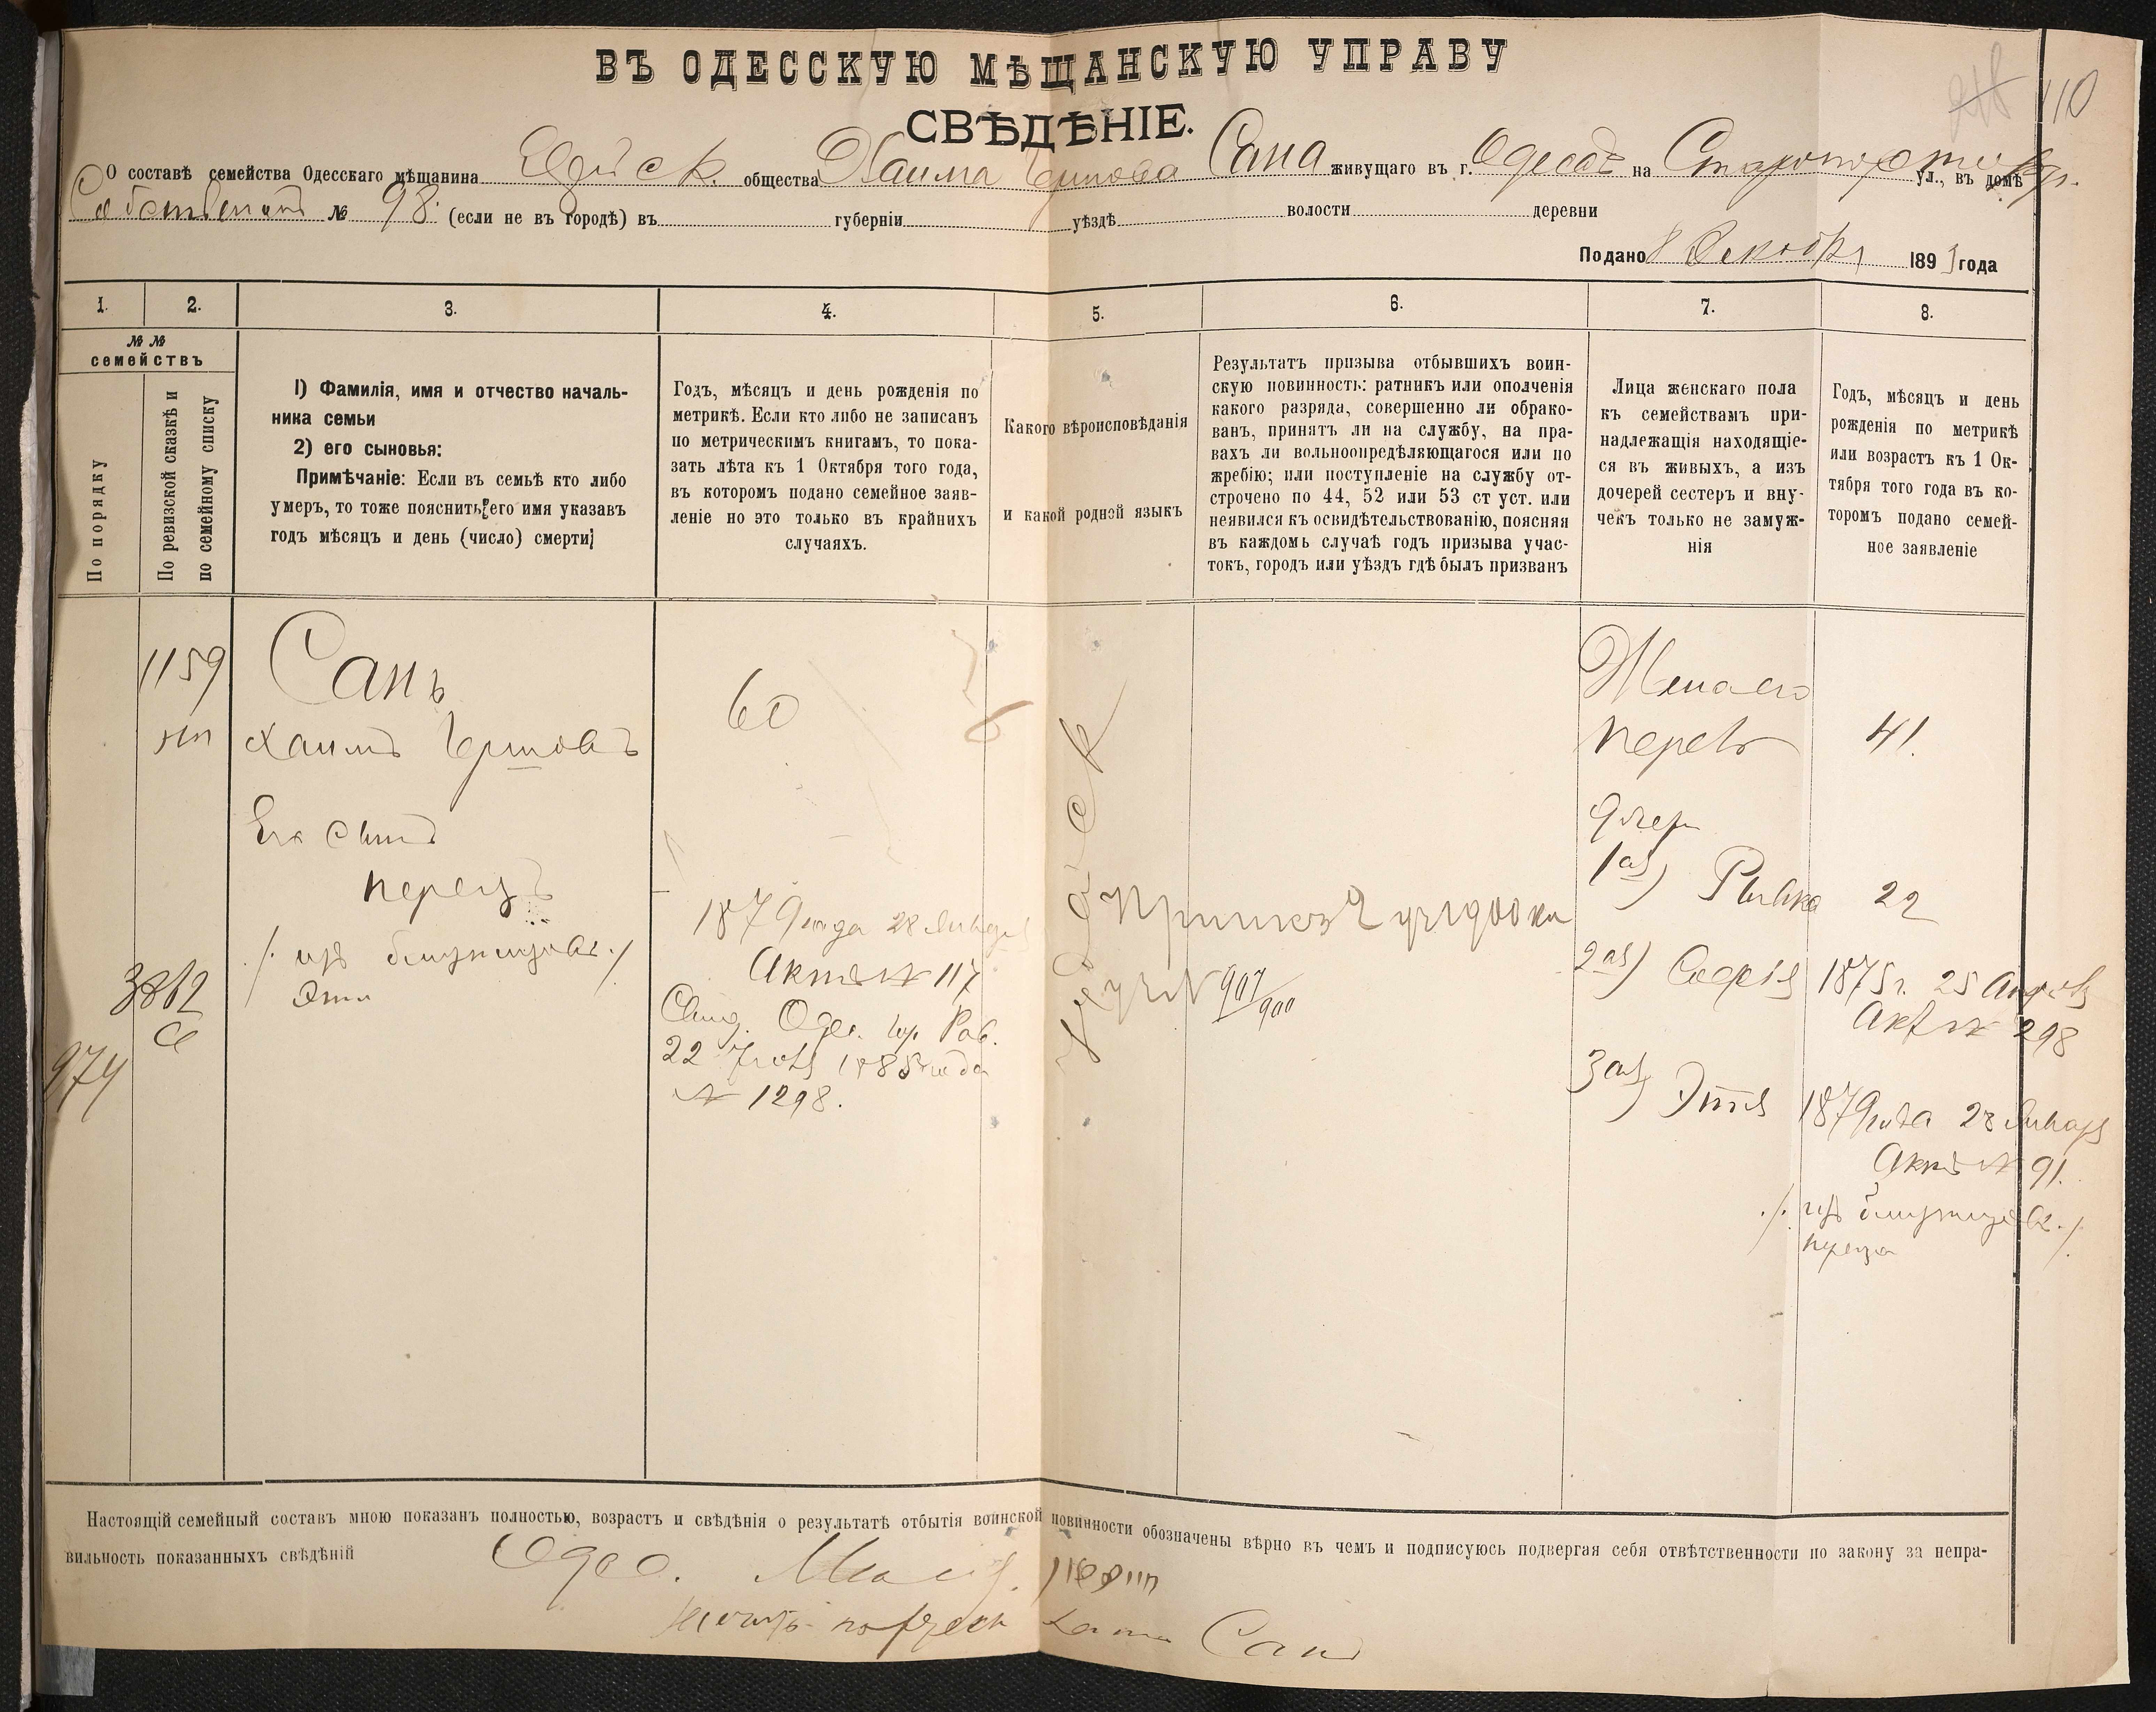 ВЪ ОДЕССКУЮ МѢЩАНСКУЮ УПРАВУ
СВѢДѢНІЕ.
110
О составѣ семейства Одесскаго мѣщанина общества Хаима Сана живущаго въ г. Одессѣ на ул., въ домѣ
№ 98. (если не въ городѣ) въ губерніи уѣздѣ волости деревни
Подано 8 189 года
1. 2. 3. 4. 5. 6. 7. 8.
№ № семействъ
По порядку
По ревизской сказкѣ и по семейному списку
1) Фамилія, имя и отчество началь-
ника семьи
2) его сыновья:
Примѣчаніе: Если въ семьѣ кто либо
умеръ, то тоже пояснить его имя указавъ
годъ мѣсяцъ и день (число) смерти;
Годъ, мѣсяцъ и день рожденія по
метрикѣ. Если кто либо не записанъ
по метрическимъ книгамъ, то пока-
зать лѣта къ 1 Октября того года,
въ которомъ подано семейное заяв-
леніе но это только въ крайнихъ
случаяхъ.
Какого вѣроисповѣданія
и какой родной языкъ
Результатъ призыва отбывшихъ воин-
скую повинность: ратникъ или ополченія
какого разряда, совершенно ли обрако-
ванъ, принятъ ли на службу, на пра-
вахъ ли вольноопредѣляющагося или по
жребію; или поступленіе на службу от-
строчено по 44, 52 или 53 ст уст. или
неявился къ освидѣтельствованію, поясняя
въ каждомъ случаѣ годъ призыва учас-
токъ, городъ или уѣздъ гдѣ былъ призванъ
Лица женскаго пола
къ семействамъ при-
надлежащія находящіе-
ся въ живыхъ, а изъ
дочерей сестеръ и вну-
чекъ только не замуж-
нія
Годъ, мѣсяцъ и день
рожденія по метрикѣ
или возрастъ къ 1 Ок-
тября того года въ ко-
торомъ подано семей-
ное заявленіе
1159
Санъ
Хаимъ
60
Жена его
41.
Его сынъ
Перецъ
/. изъ близнецовъ ./
Эти
974
1879 года 28 Января
Актъ № 117
22 1885 года
№ 1298.
907/900
1ая) Рывка 22
2ая) Софія 1875 г. 25
Актъ № 298
3ая) Этя 1879 года 28 Января
Актъ № 91.
./. изъ близнецовъ ./.
Переца
Настоящій семейный составъ мною показанъ полностью, возрастъ и свѣдѣнія о результатѣ отбытія воинской повинности обозначены вѣрно въ чемъ и подписуюсь подвергая себя отвѣтственности по закону за непра-
вильность показанныхъ свѣдѣній
Одес.
Санъ